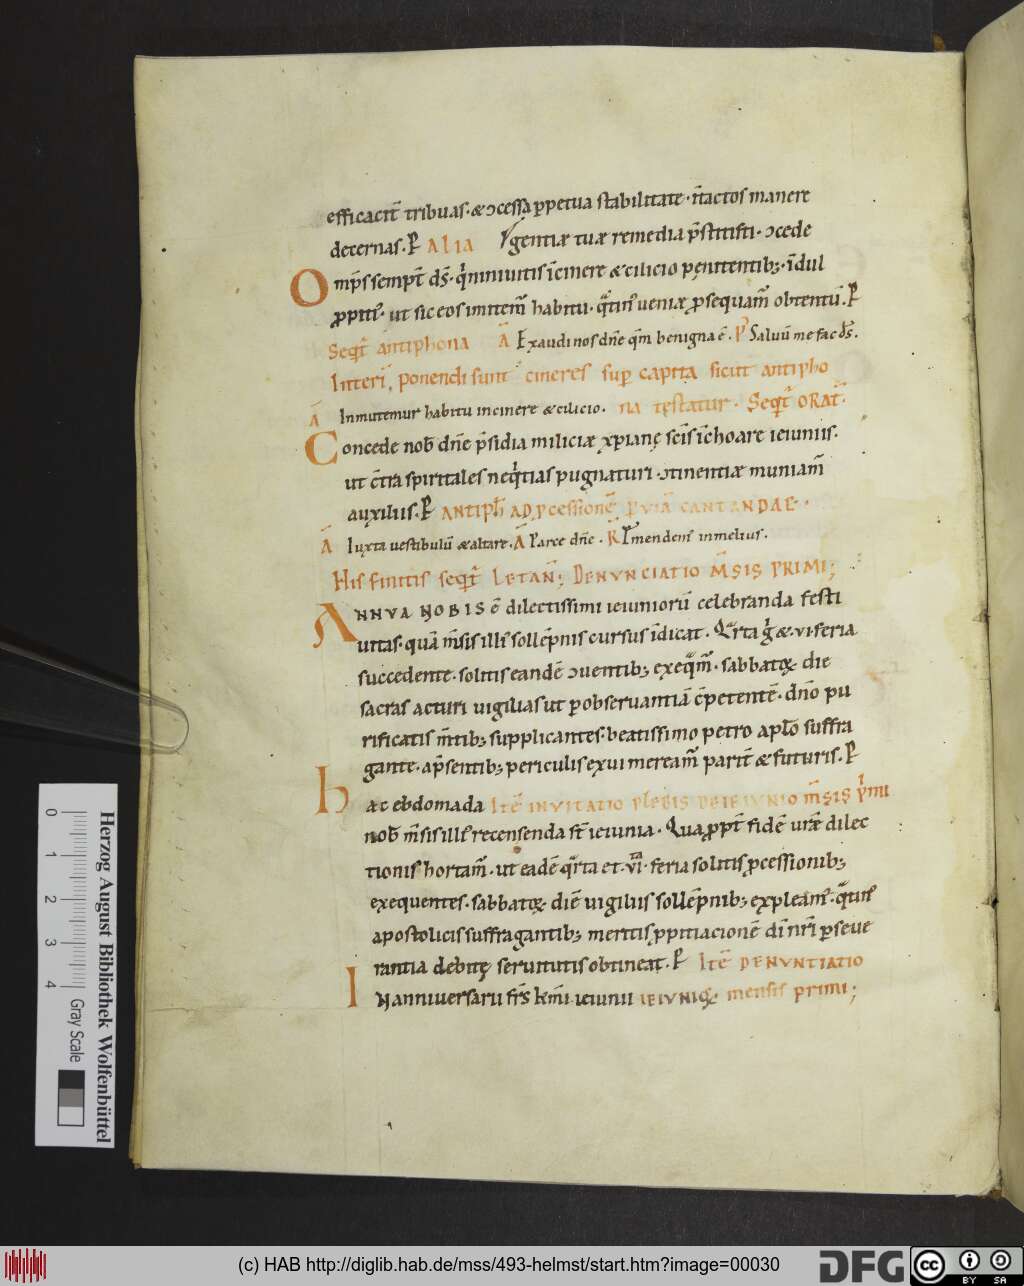 efficacit̄ tribuas · & ɔcessa ꝑpetua stabilitate · ītactos manere
decernas . P̱ ALIA gentiæ tuæ remedia p̄stitisti · ɔcede
Omp̄s sempt̄ ds̄ · q̄ niniuitis īcinere & cilicio penitentib; · īdul
ꝓpiti᷒ · ut sic eos imitem̄ habitu · q̄tin᷒ ueniæ ꝓsequam̄ obtentū . P̱
Seqt̄ antiphona Ā Exaudi nos dn̄e qm̄ benigna ē . P̄ Saluū me fac ds̄ .
Interī ponendi sunt cineres sup̄ capita sicut antipho
Ā Inmutemur habitu in cinere & cilicio . na tęstatur . Seqt̄ ORAT̄ .
Concede nob̄ dn̄e p̄sidia miliciæ xp̄ianę sc̄is īchoare ieiuniis .
ut c̄tra spiritales neq̄tias pugnaturi · ɔtinentiæ muniam̄
auxiliis . P̱ ANTIPH̄ AD ꝓcessionē P̱ VIĀ CANTANDAE .
Ā Iuxta uestibulū & altare . Ā Parce dn̄e . R̄ Emendem᷒ in melius .
HIS FINITIS SEQT̄ LETAN̄; DENVNCIATIO M̄SIS PRIMI;
ANNVA NOBIS ē dilectissimi ieiuniorū celebranda festi
uitas · quā m̄sis illi᷒ sollēpnis cursus īdicat . Q̄rta ḡ & · vi · feria
succedente · solitis eandē ɔuentib; exeq̄m̄ · sabbatoꝝ die
sacras acturi uigilias ut ꝑ obseruantiā c̄petentē · dn̄o pu
rificatis m̄tib; supplicantes · beatissimo petro aplō suffra
gante · ap̄sentib; periculis exui mereām̄ parit̄ & futuris . P̱
Hac ebdomada ITĒ INVITATIO PLEBIS DE IEIVNIO M̄SIS P̄MI
nob̄ m̄sis illi᷒ recensenda st̄ ieiunia . Qua ꝓpt̄ fidē ur̄æ dilec
tionis hortam̄ · ut eadē q̄rta et · vi · feria solitis ꝓcessionib;
exequentes · sabbatoꝝ diē uigiliis sollēpnib; expleam᷒ · q̄tin᷒
apostolicis suffragantib; meritis ꝓpitiacionē dī nr̄i ꝑseue
rantia debitę seruitutis obtineat . P̱ ITĒ DENVNTIATIO
IN anniuersarii fr̄s km̄i ieiunii IEIVNIOꝝ mensis primi;
0 1 2 3 4
Gray Scale
Herzog August Bibliothek Wolfenbüttel
(c) HAB http://diglib.hab.de/mss/493-helmst/start.htm?image=00030
DFG
cc BY SA